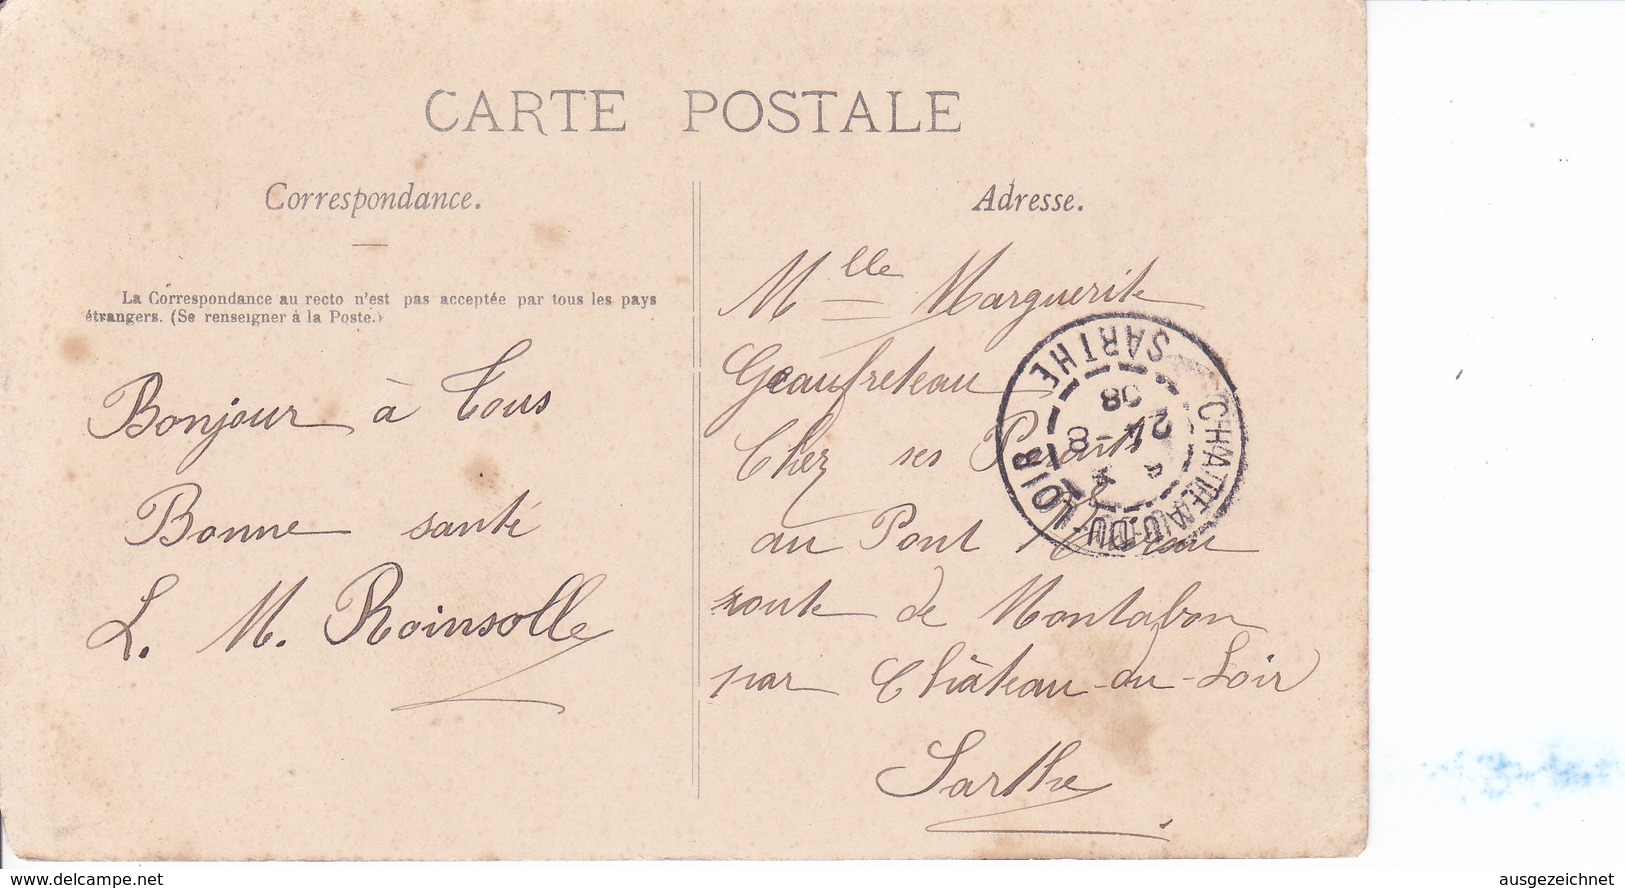 CARTE POSTALE
Correspondance.
La Correspondance au recto n'est pas acceptée par tous les pays
étrangers. (Se renseigner à la Poste.)
Bonjour à tous
Bonne santé
L. M. Roinsolle
Adresse.
Mlle Marguerite
Geaufreteau
Chez ses Parents
au Pont
route de Montabon
par Château-du-Loir
Sarthe
CHATEAU-DU-LOIR
SARTHE
24 - 8
08
www.delcampe.net
ausgezeichnet